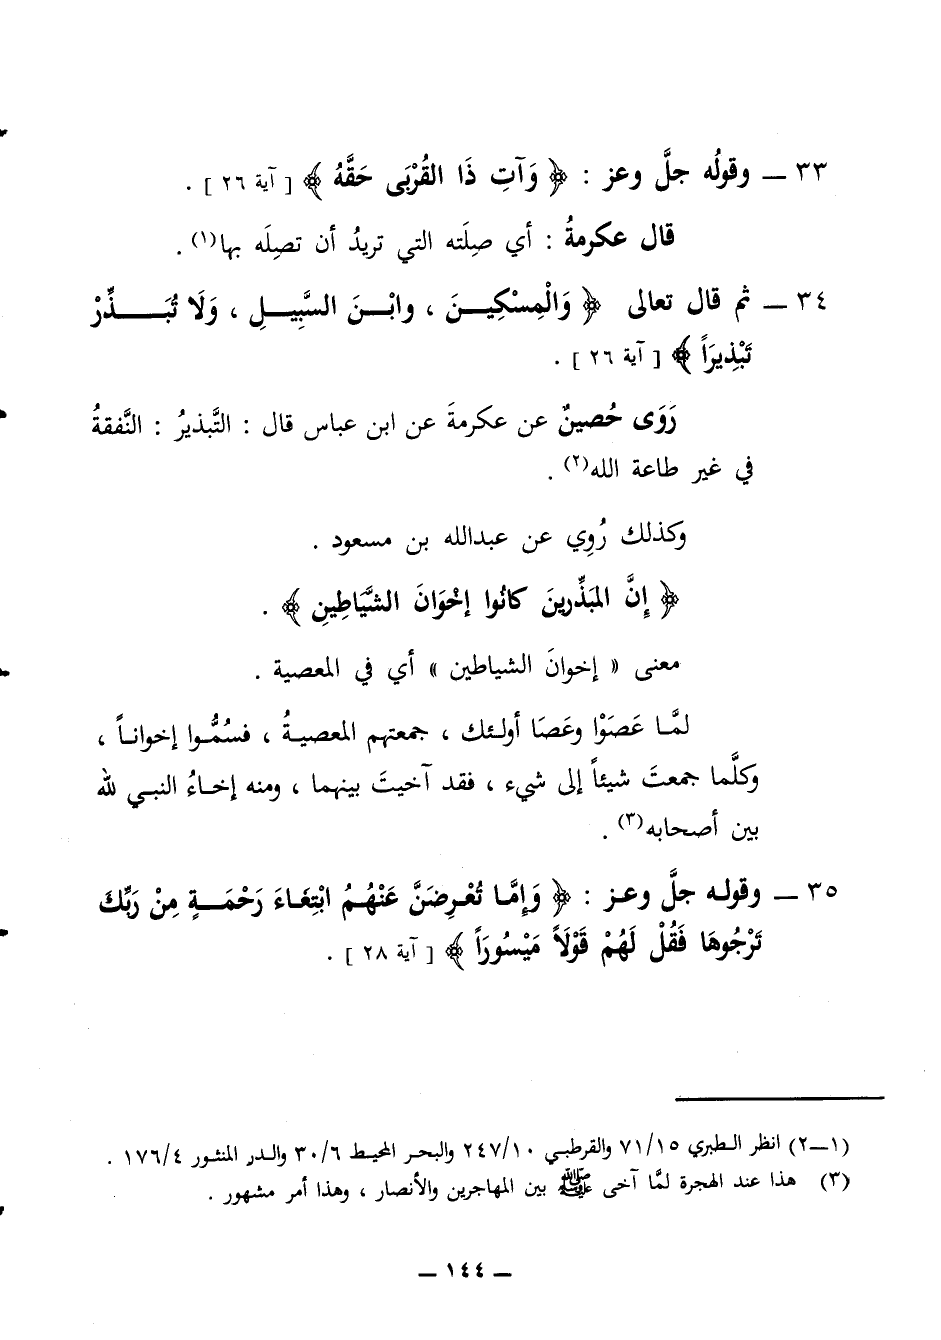 ٣٣ ـ وقولُه جلَّ وعز : ﴿ وَآتِ ذَا القُرْبَى حَقَّهُ ﴾ [ آية ٢٦ ] .
قال عكرمةُ : أي صِلَته التي تريدُ أن تصِلَه بها(١) .
٣٤ ـ ثم قال تعالى ﴿ وَالْمِسْكِيـنَ ، وابْـنَ السَّبِيـلِ ، وَلَا تُبَـــذِّرْ
تَبْذِيرَاً ﴾ [ آية ٢٦ ] .
رَوَى حُصينٌ عن عكرمةَ عن ابن عباس قال : التَّبذيرُ : النَّفقةُ
في غير طاعة الله(٢) .
وكذلك رُوِي عن عبدالله بن مسعود .
﴿ إِنَّ المَبَذِّرينَ كانُوا إخْوَانَ الشَّيَاطِينِ ﴾ .
معنى « إخوانَ الشياطين » أي في المعصية .
لمَّـا عَصَوْا وعَصَا أولـئك ، جمعتهم المعصيـةُ ، فسُمُّـوا إخوانـاً ،
وكلَّما جمعتَ شيئاً إلى شيء ، فقد آخيتَ بينهما ، ومنه إخـاءُ النبـي ﷺ
بين أصحابه(٣) .
٣٥ ـ وقولـه جلَّ وعـز : ﴿ وَإمَّـا تُعْـرِضَنَّ عَنْهُـمُ ابْتِغَـاءَ رَحْمَـــةٍ مِنْ رَبِّكَ
تَرْجُوهَا فَقُلْ لَهُمْ قَوْلَاً مَيْسُورَاً ﴾ [ آية ٢٨ ] .
(١ـ٢) انظر الـطبري ٧١/١٥ والقرطبـي ٢٤٧/١٠ والبحـر المحيـط ٣٠/٦ والـدر المنثـور ١٧٦/٤ .
(٣) هذا عند الهجرة لمَّا آخى ﷺ بين المهاجرين والأنصار ، وهذا أمر مشهور .
ـ ١٤٤ ـ